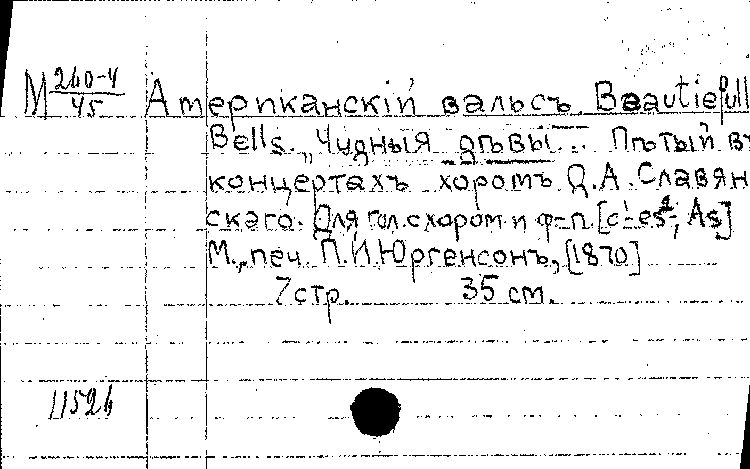 М 260-4/45 Американскій вальсъ. Beautiefull
Bells. „Чудныя дѣвы... Пѣтый въ
концертахъ хоромъ Д.А.Славян
скаго. Для гол. с хором и ф-п. [c¹-es², As]
М., печ. П.И.Юргенсонъ, [1870]
7 стр. 35 cm.
11526